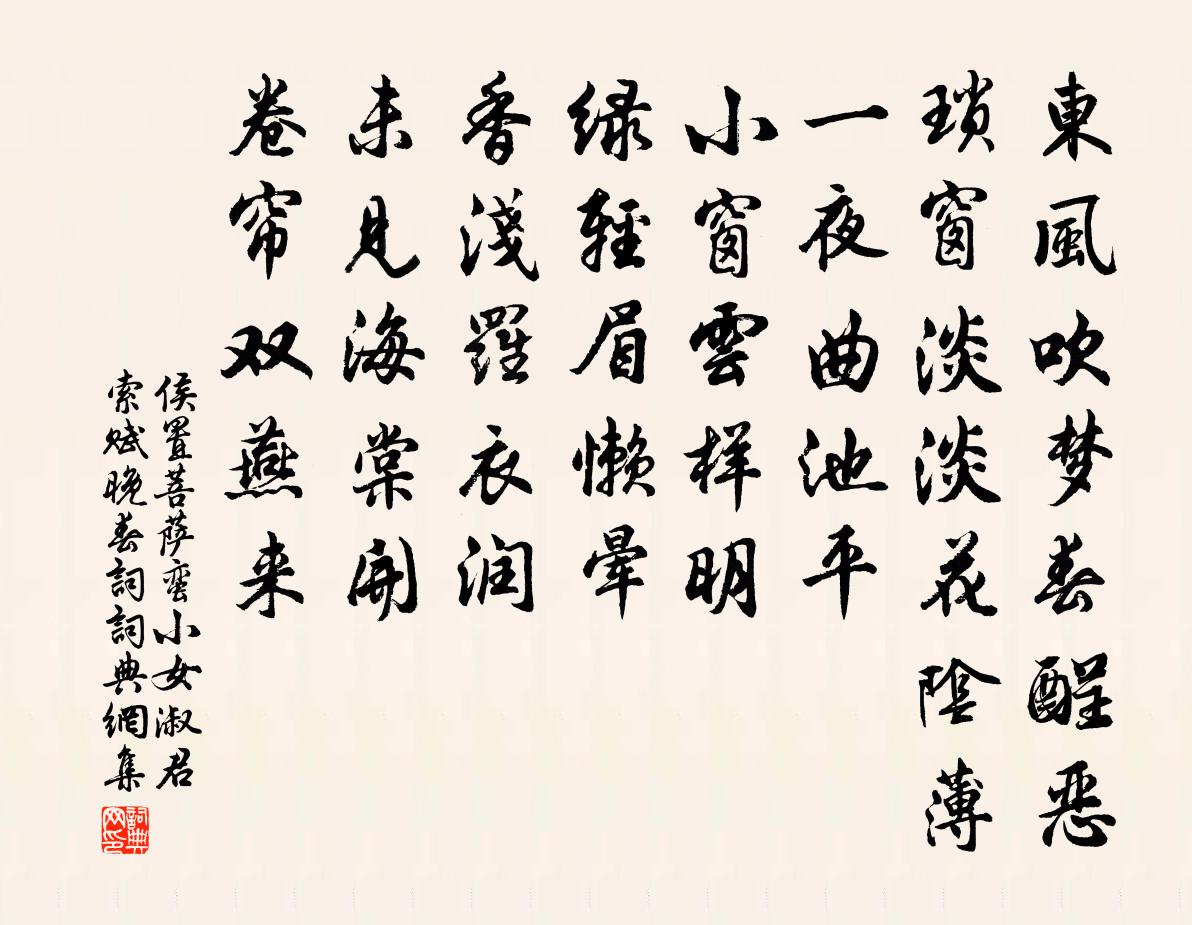 東風吹梦春酲恶
瑣窗淡淡花陰薄
一夜曲池平
小窗雲样明
绿輕眉懒暈
香淺羅衣润
未見海棠開
卷帘双燕来
侯置菩萨蛮小女淑君
索赋晚春詞詞典網集
詞典网印